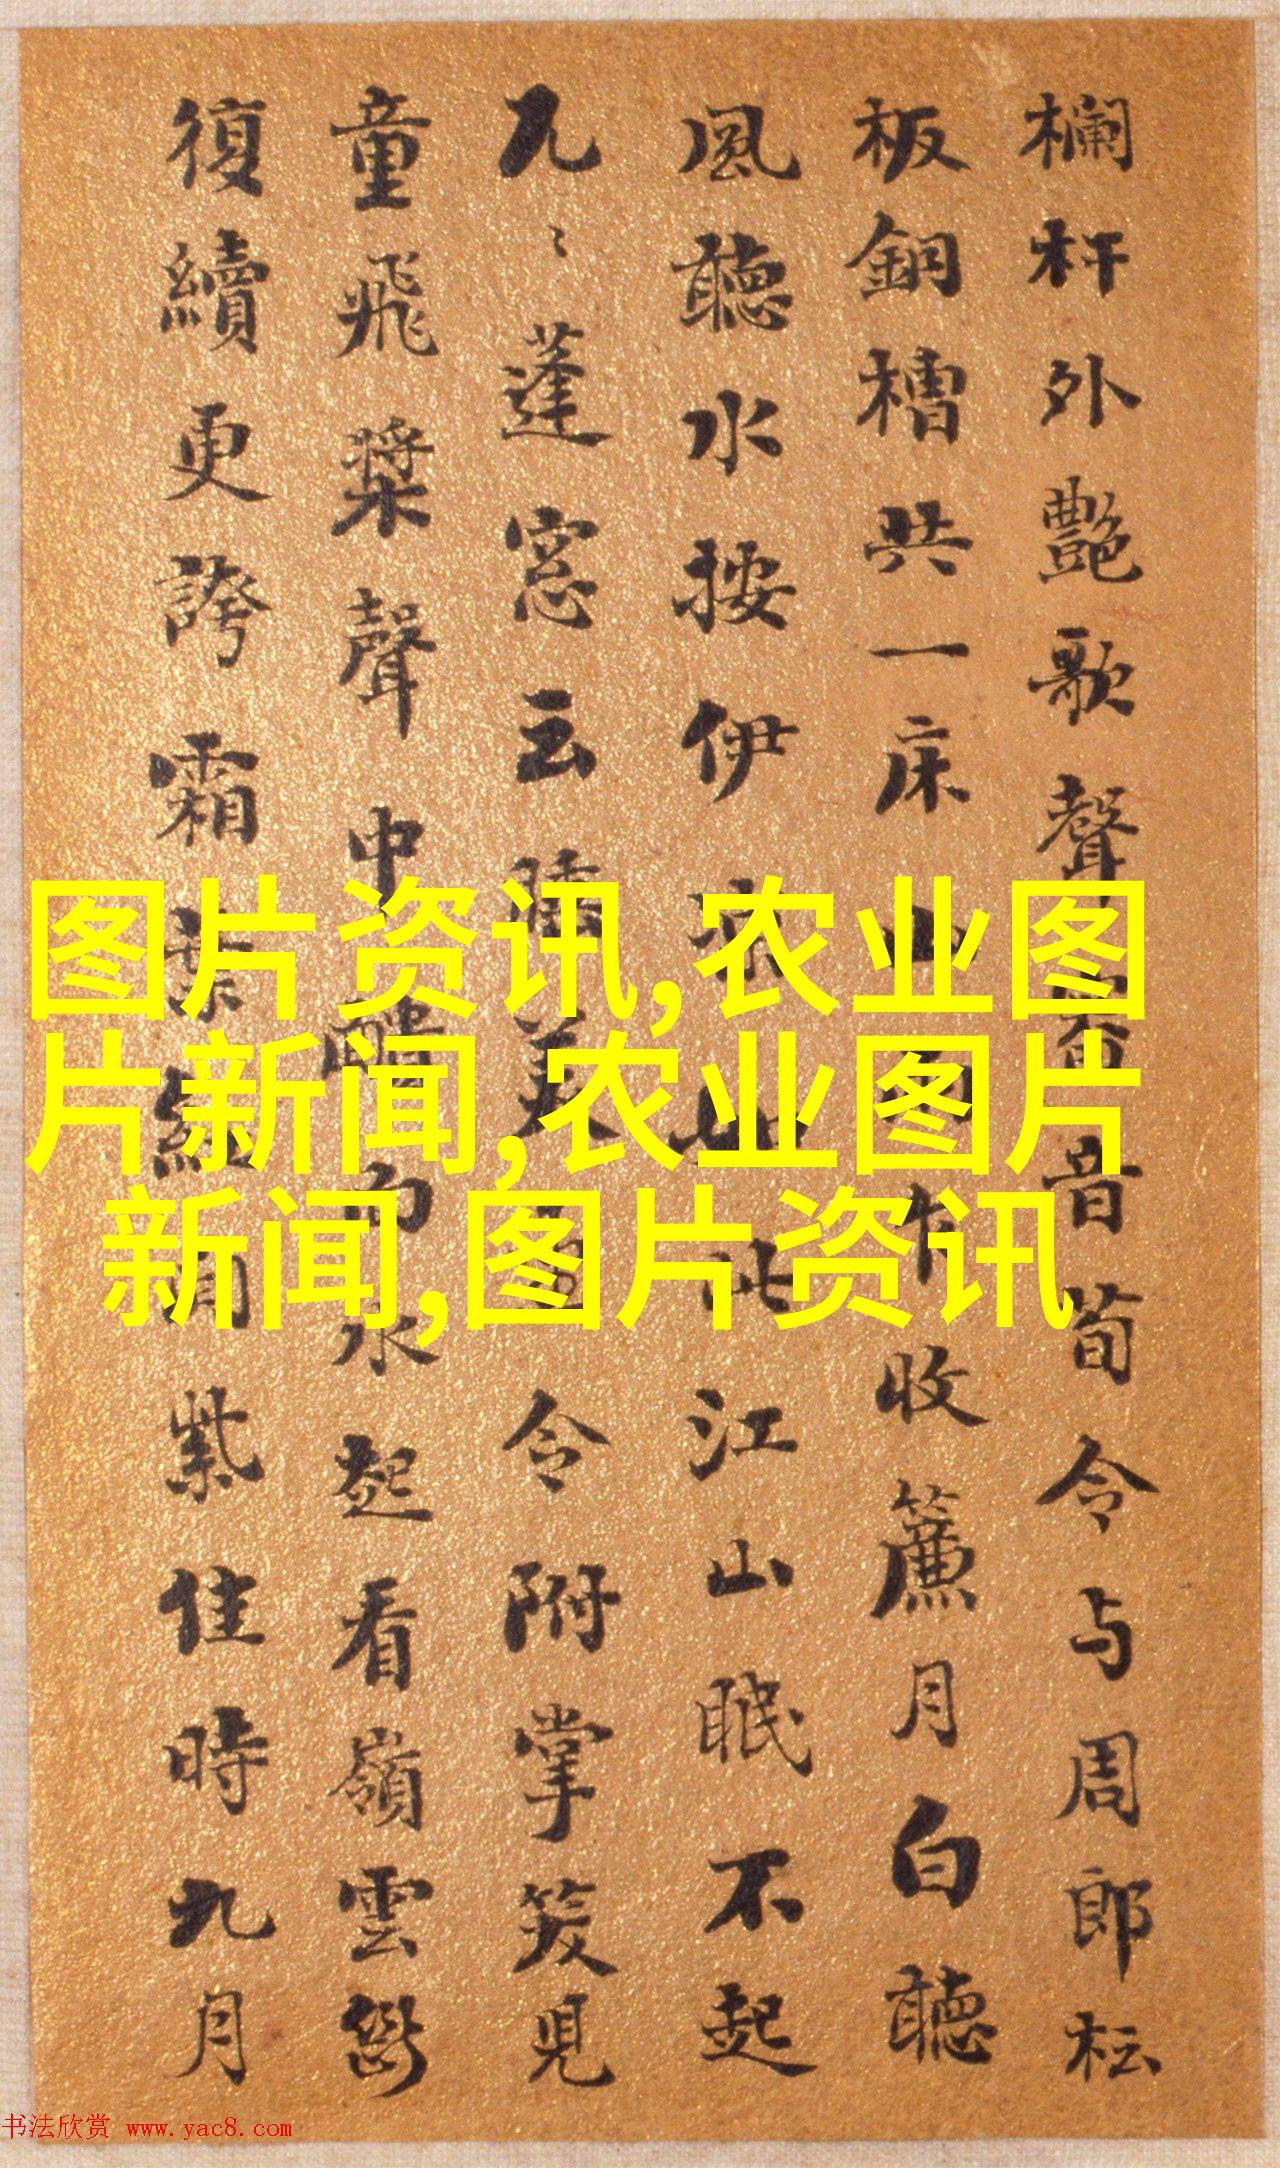 欄杆外艷歌聲昔荀令与周郎枟
板銅槽共一床山乍收簾月白聽
風聽水按伊涼如此江山眠不起
兀〻蓬窓云令附掌笑見
童飛槳聲中水起看嶺雲
復續更誇霜葉紅紫佳時九月
图片资讯,农业图
片新闻,农业图片
新闻,图片资讯
书法欣赏 www.yac8.com